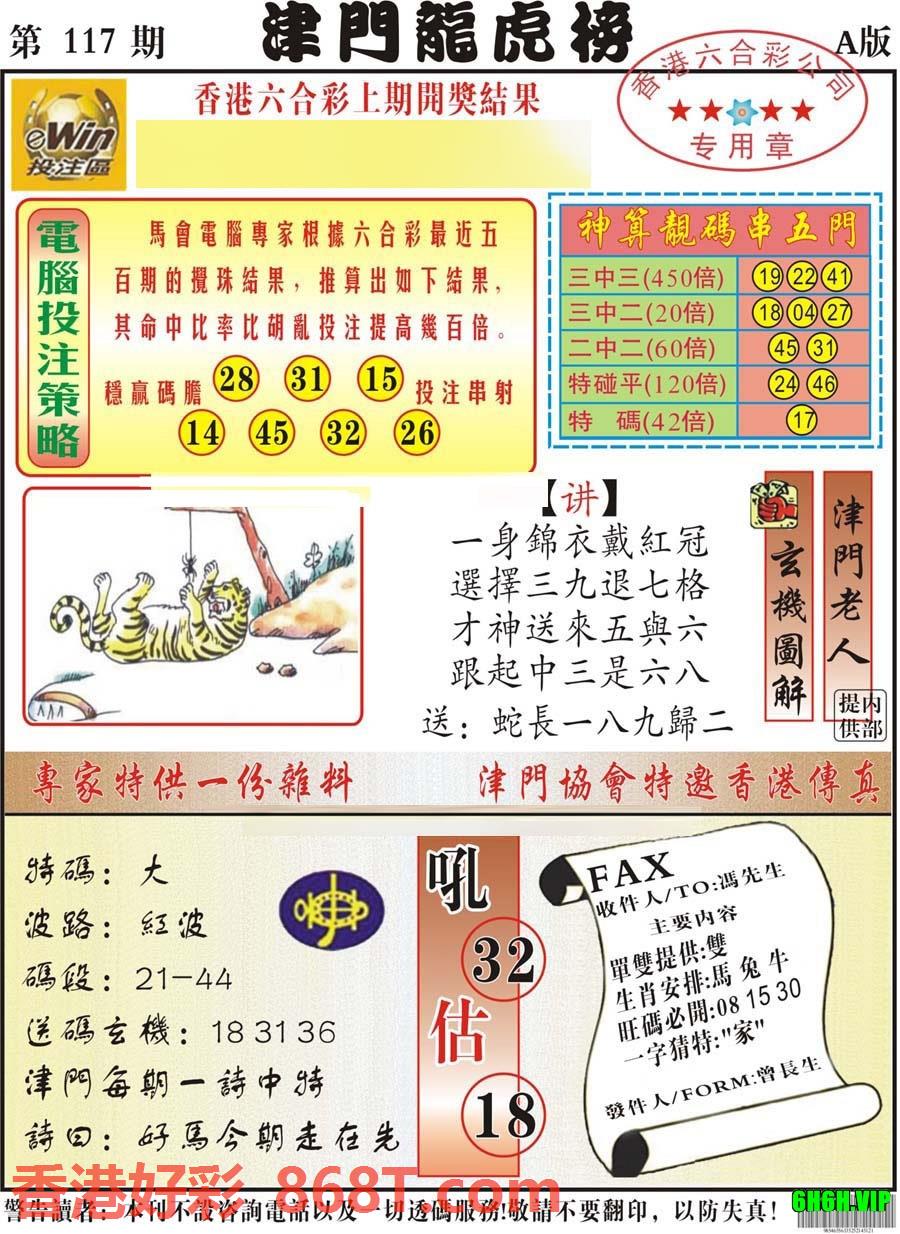 第 117 期
津門龍虎榜
A版
eWin
投注區
香港六合彩上期開獎結果
香港六合彩公司
★★★★
专用章
電腦投注策略
馬會電腦專家根據六合彩最近五
百期的攪珠結果，推算出如下結果，
其命中比率比胡亂投注提高幾百倍。
穩贏碼膽 28 31 15 投注串射
14 45 32 26
神算靚碼串五門
三中三(450倍) 19 22 41
三中二(20倍) 18 04 27
二中二(60倍) 45 31
特碰平(120倍) 24 46
特 碼(42倍) 17
【讲】
一身錦衣戴紅冠
選擇三九退七格
才神送來五與六
跟起中三是六八
送：蛇長一八九歸二
玄機圖解
津門老人
內部提供
專家特供一份雜料
津門協會特邀香港傳真
特碼：大
波路：紅波
碼段：21－44
送碼玄機：18 31 36
津門每期一詩中特
詩曰：好馬今期走在先
吼
32
估
18
FAX
收件人/TO:馮先生
主要内容
單雙提供:雙
生肖安排:馬 兔 牛
旺碼必開:08 15 30
一字猜特:"家"
發件人/FORM:曾長生
香港好彩 868T.com
警告讀者：本刊不設咨詢電話以及一切透碼服務!敬請不要翻印，以防失真!
6H6H.VIP